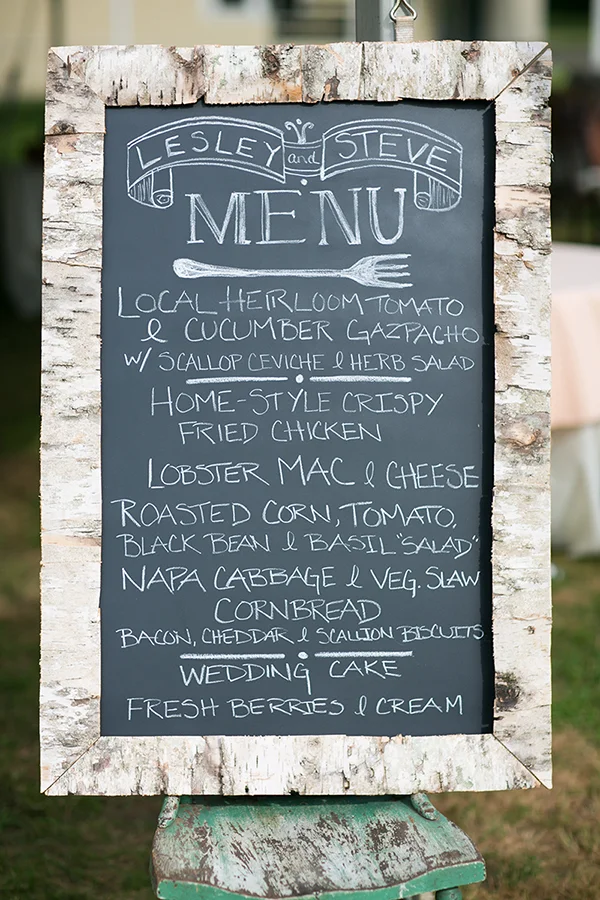 LESLEY and STEVE
MENU
LOCAL HEIRLOOM TOMATO
& CUCUMBER GAZPACHO
W/ SCALLOP CEVICHE & HERB SALAD
HOME-STYLE CRISPY
FRIED CHICKEN
LOBSTER MAC & CHEESE
ROASTED CORN, TOMATO,
BLACK BEAN & BASIL "SALAD"
NAPA CABBAGE & VEG. SLAW
CORNBREAD
BACON, CHEDDAR & SCALLION BISCUITS
WEDDING CAKE
FRESH BERRIES & CREAM